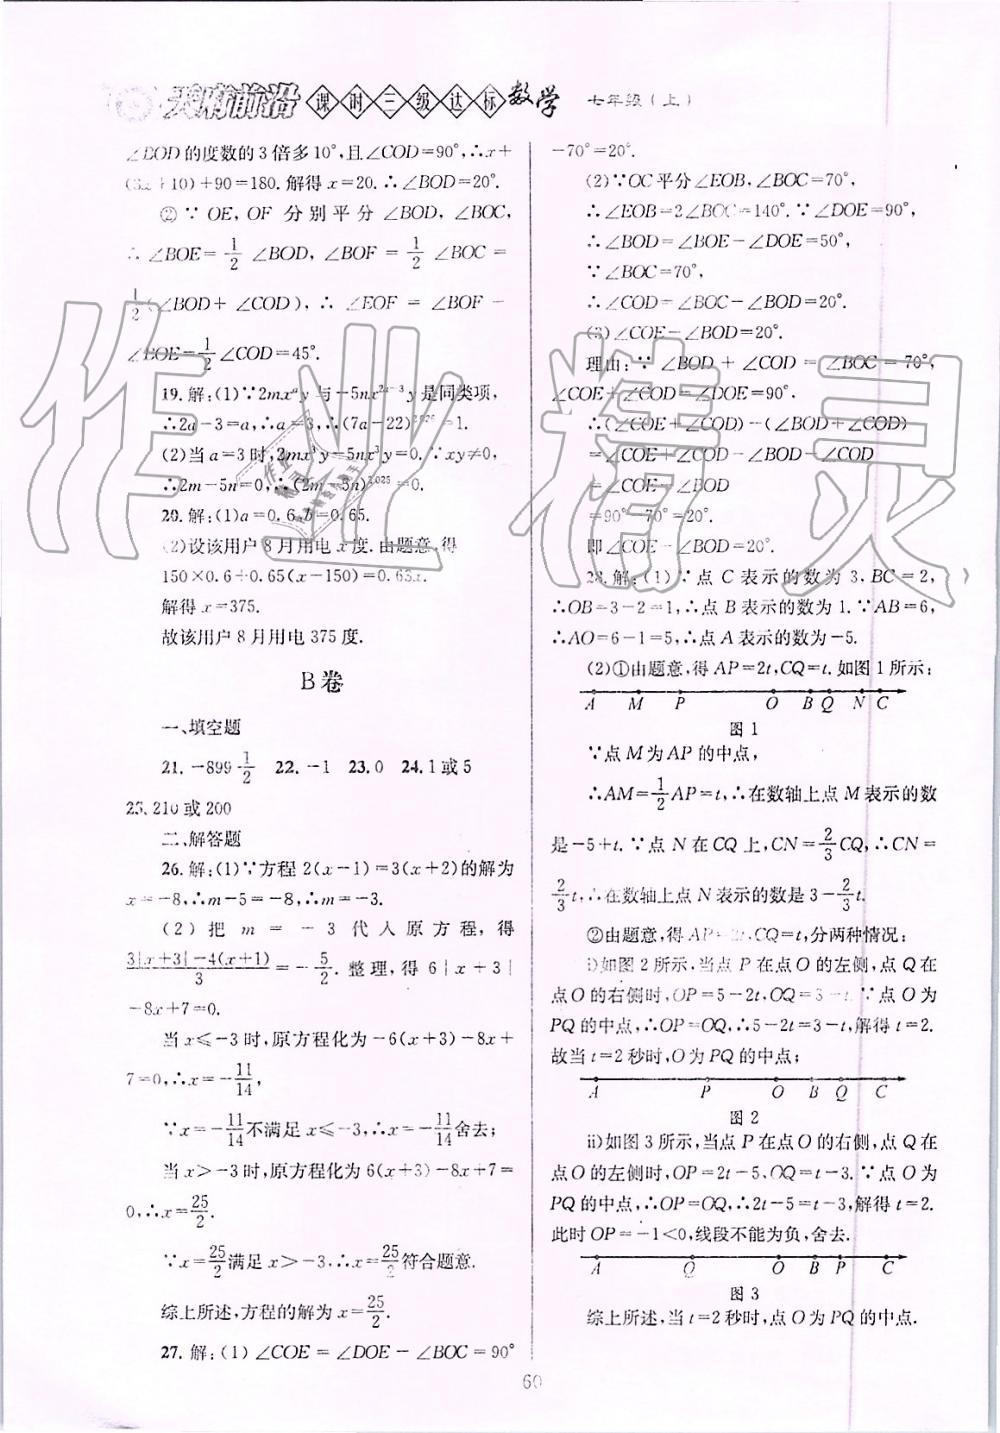 天府前沿 课时三级达标 数学 七年级(上)
∠BOD的度数的3倍多10°,且∠COD=90°,∴x+
(3x+10)+90=180. 解得 x=20. ∴∠BOD=20°.
②∵ OE, OF 分别平分∠BOD, ∠BOC,
∴ ∠BOE=1/2 ∠BOD, ∠BOF=1/2 ∠BOC=
1/2(∠BOD+∠COD), ∴ ∠EOF = ∠BOF -
∠BOE=1/2∠COD=45°.
19. 解:(1)∵2mxᵃy与-5nx²ᵃ⁻³y是同类项,
∴2a-3=a,∴a=3,∴(7a-22)²⁰²⁵=-1.
(2)当a=3时,2mx³y=5nx³y. ∵xy≠0,
∴2m-5n=0,∴(2m-5n)²⁰²⁵=0.
20. 解:(1)a=0.6,b=0.65.
(2)设该用户8月用电x度. 由题意,得
150×0.6+0.65(x-150)=0.63x.
解得 x=375.
故该用户8月用电375度.
B卷
一、填空题
21. -899 1/2 22. -1 23. 0 24. 1或5
25. 210或200
二、解答题
26. 解:(1)∵方程2(x-1)=3(x+2)的解为
x=-8,∴m-5=-8,∴m=-3.
(2)把 m = -3 代入原方程, 得
3|x+3|-4(x+1)/3=-5/2. 整理, 得 6|x+3|
-8x+7=0.
当x≤-3时,原方程化为-6(x+3)-8x+
7=0,∴x=-11/14,
∵x=-11/14不满足x≤-3,∴x=-11/14舍去;
当x>-3时,原方程化为6(x+3)-8x+7=
0,∴x=25/2.
∵x=25/2满足x>-3,∴x=25/2符合题意.
综上所述,方程的解为x=25/2.
27. 解:(1)∠COE=∠DOE-∠BOC=90°
-70°=20°.
(2)∵OC平分∠EOB,∠BOC=70°,
∴∠EOB=2∠BOC=140°. ∵∠DOE=90°,
∴∠BOD=∠BOE-∠DOE=50°,
∵∠BOC=70°,
∴∠COD=∠BOC-∠BOD=20°.
(3)∠COE-∠BOD=20°.
理由:∵∠BOD+∠COD=∠BOC=70°,
∠COE+∠COD=∠DOE=90°,
∴(∠COE+∠COD)-(∠BOD+∠COD)
=∠COE+∠COD-∠BOD-∠COD
=∠COE-∠BOD
=90°-70°=20°.
即∠COE-∠BOD=20°.
28. 解:(1)∵点C表示的数为3,BC=2,
∴OB=3-2=1,∴点B表示的数为1. ∵AB=6,
∴AO=6-1=5,∴点A表示的数为-5.
(2)①由题意,得AP=2t,CQ=t. 如图1所示:
A M P O B Q N C
图1
∵点M为AP的中点,
∴AM=1/2AP=t,∴在数轴上点M表示的数
是-5+t. ∵点N在CQ上,CN=2/3CQ,∴CN=
2/3t,∴在数轴上点N表示的数是3-2/3t.
②由题意,得AP=2t,CQ=t,分两种情况:
i)如图2所示,当点P在点O的左侧,点Q在
点O的右侧时,OP=5-2t,OQ=3-t. ∵点O为
PQ的中点,∴OP=OQ,∴5-2t=3-t,解得t=2.
故当t=2秒时,O为PQ的中点;
A P O B Q C
图2
ii)如图3所示,当点P在点O的右侧,点Q在
点O的左侧时,OP=2t-5,OQ=t-3. ∵点O为
PQ的中点,∴OP=OQ,∴2t-5=t-3,解得t=2.
此时OP=-1<0,线段不能为负,舍去.
A Q O B P C
图3
综上所述,当t=2秒时,点O为PQ的中点.
60
作业精灵